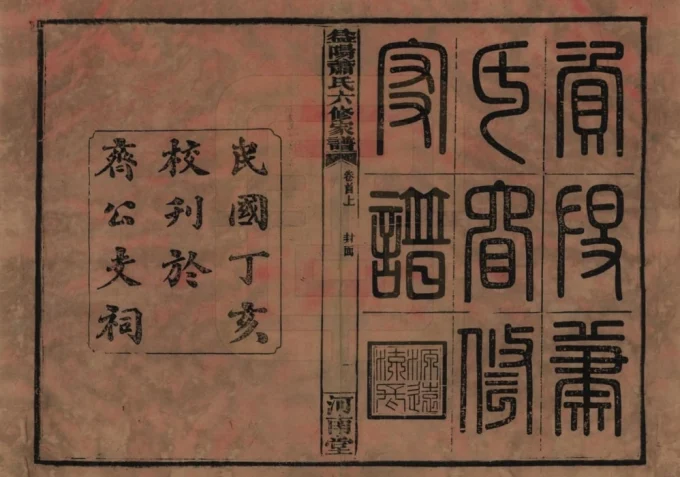 資蕭
氏修
家譜
源遠
流長
益陽蕭氏六修家譜
卷首上
封面
一
河南堂
民國丁亥
校刊於
齊公支祠